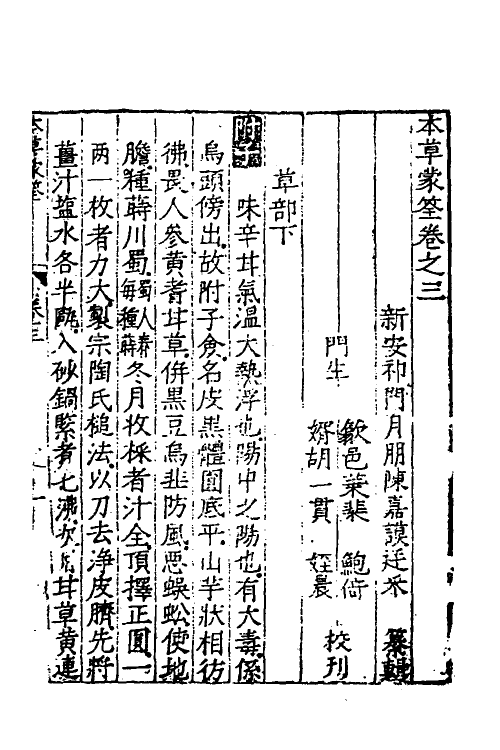 本草蒙筌卷之三
新安祁門月朋陳嘉謨廷采 纂輯
門生 歙邑葉棐 鮑倚
婿胡一貫 姪晨 校刊
草部下
附子 味辛甘氣溫大熱浮也陽中之陽也有大毒係
烏頭傍出故附子僉名皮黑體圓底平山芋狀相彷
彿畏人參黃耆甘草併黑豆烏韭防風惡蜈蚣使地
膽種蒔川蜀每種蒔蜀人春冬月收採者汁全頂擇正圓一
两一枚者力大製宗陶氏槌法以刀去淨皮臍先將
薑汁塩水各半甌入砂鍋緊煮七沸次入甘草黃連